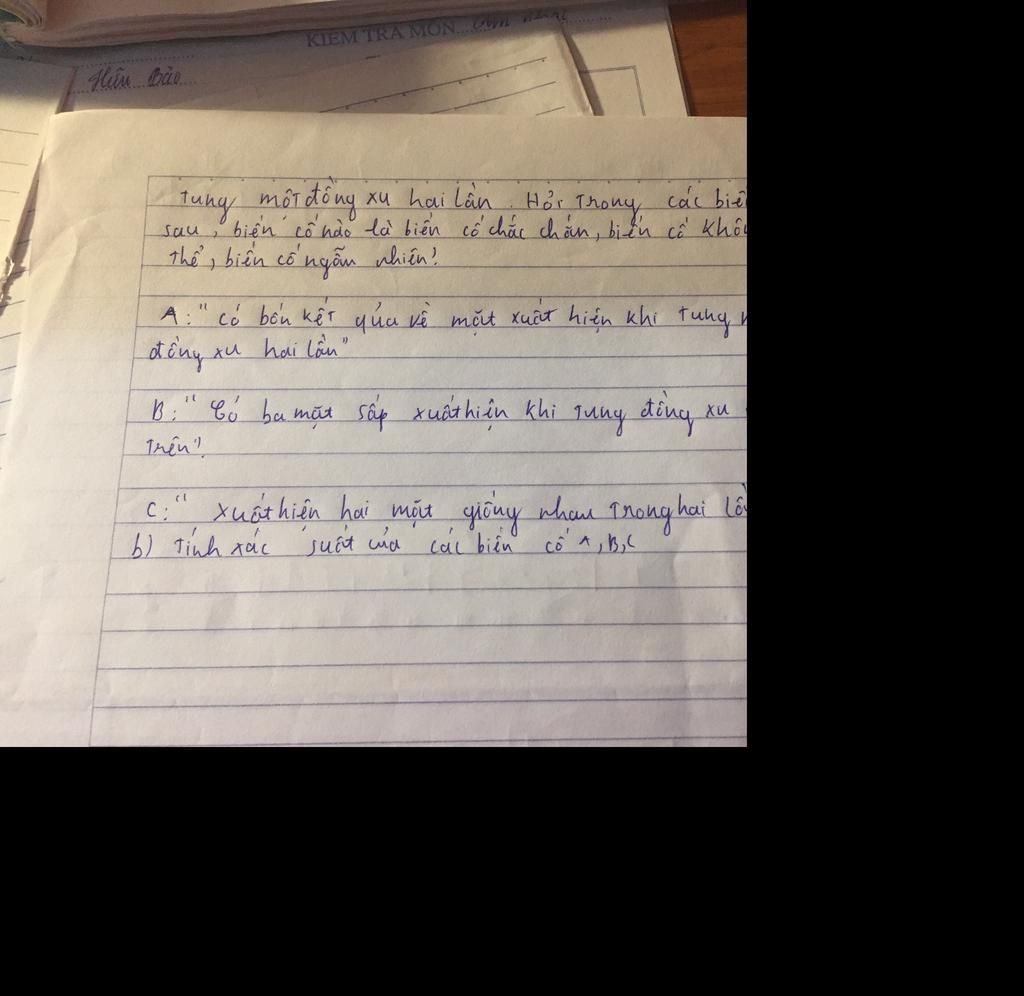 KIỂM TRA MÔN
Hữu Bảo
Tung một đồng xu hai lần. Hỏi trong các biế
sau, biến cố nào là biến cố chắc chắn, biến cố khô
thể, biến cố ngẫu nhiên?
A: "Có bốn kết qủa về mặt xuất hiện khi tung
đồng xu hai lần"
B: "Có ba mặt sấp xuất hiện khi tung đồng xu
trên".
C: "Xuất hiện hai mặt giống nhau trong hai lầ
b) Tính xác suất của các biến cố A, B, C